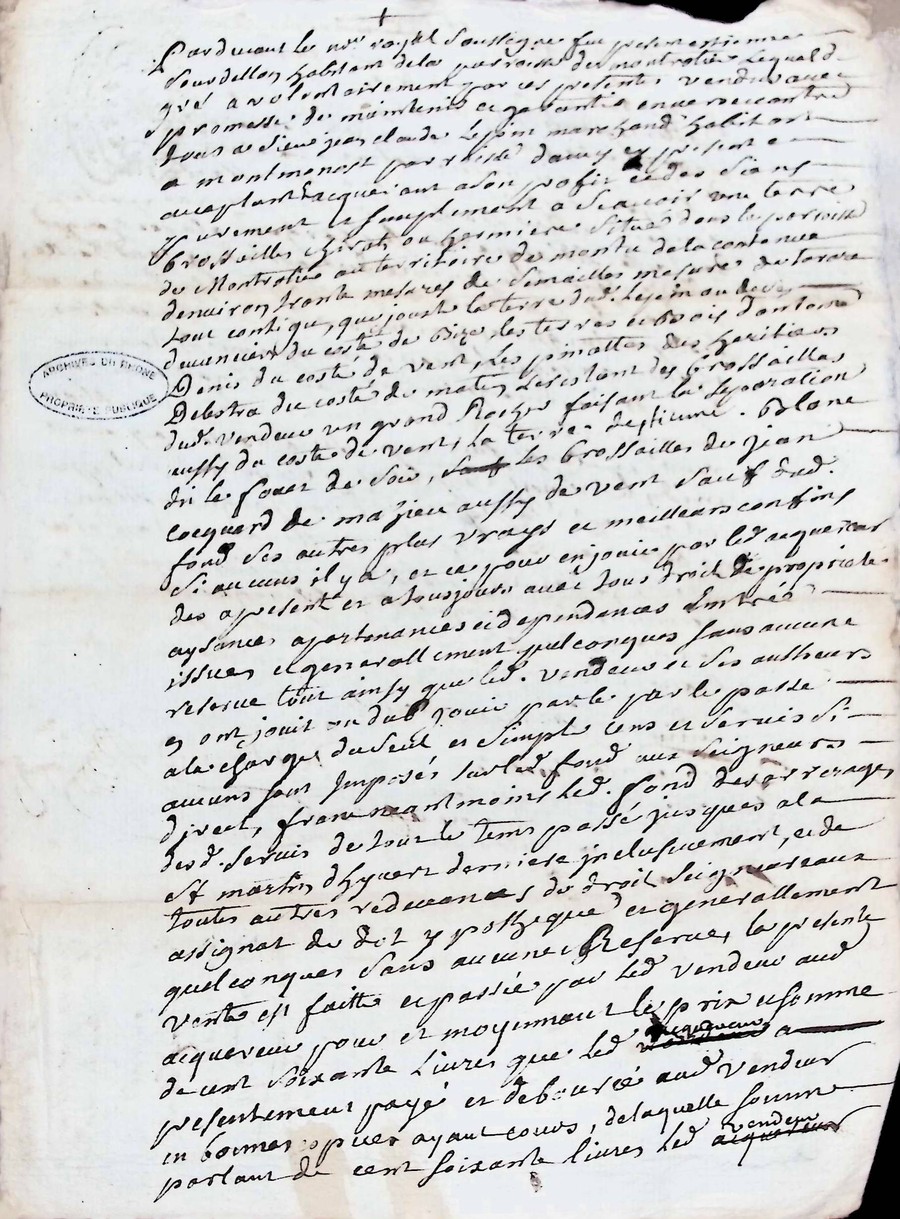 Pardevant le nore royal soussigné fut present estienne
Bourdellon habitant de la parroisse de montrotier lequel de
gré a volontairement par ces presentes vendu avec
promesse de maintenir et garantir envers et contre
tous a sieur jean claude Lejoin marchand habitant
a montmenost parroisse daucy present et
acceptant acquereur a son profit et des siens
purement et simplement a Scavoir une terre
brossailles chirat ou hermiere situé dans la parroisse
de Montrotier au territoire de montu de la contenue
denviron trente mesures de semailles mesure de tarare
tout contigu, que joust la terre dud. Lejoin au devers
du coste de bize les terres et bois dantoine
Denis du coste de vent, les pinattes des heritiers
Delestra du costé de matin, le restant des brossailles
dud. vendeur un grand Rocher faisant la separation
aussy du coste de vent, la terre de blanc
dit le fouet de soir, les brossailles de jean
Cocquard de mazieu aussy de vent sauf dud.
fond ses autres plus vrays et meilleurs confins
si aucuns il y a, et ce pour en jouir par led. acquereur
des apresent et a tousjours avec tous droit de propriété
aysances apartenances et dependences Entrée
issues et generallement quelconques sans aucune
reserve tout ainsy que led. vendeur et ses autheurs
en ont jouit ou dub jouir par le par le passé
a la charge du seul et simple cens et servis si
aucuns sont Imposés sur led. fond aux seigneurs
direct, franc neantmoins led. fond des arrerages
desd. servis de tout le tems passé jusques a la
st martin d'hyvert derniere inclusivement, et de
toutes autres redevances du droit seigneuriaux
assignat de dot ypotheque et generallement
quelconques sans aucune Reserve, la presente
vente est faitte et passée par led. vendeur aud.
acquereur pour et moyennant le prix et somme
de cent soixante Livres que led. acquereur a
presentement payé et deboursé aud. vendeur
en bonnes especes ayant cours, de laquelle somme
partant de cent soixante livres led. vendeur
ARCHIVES DU RHONE
PROPRIETE PUBLIQUE